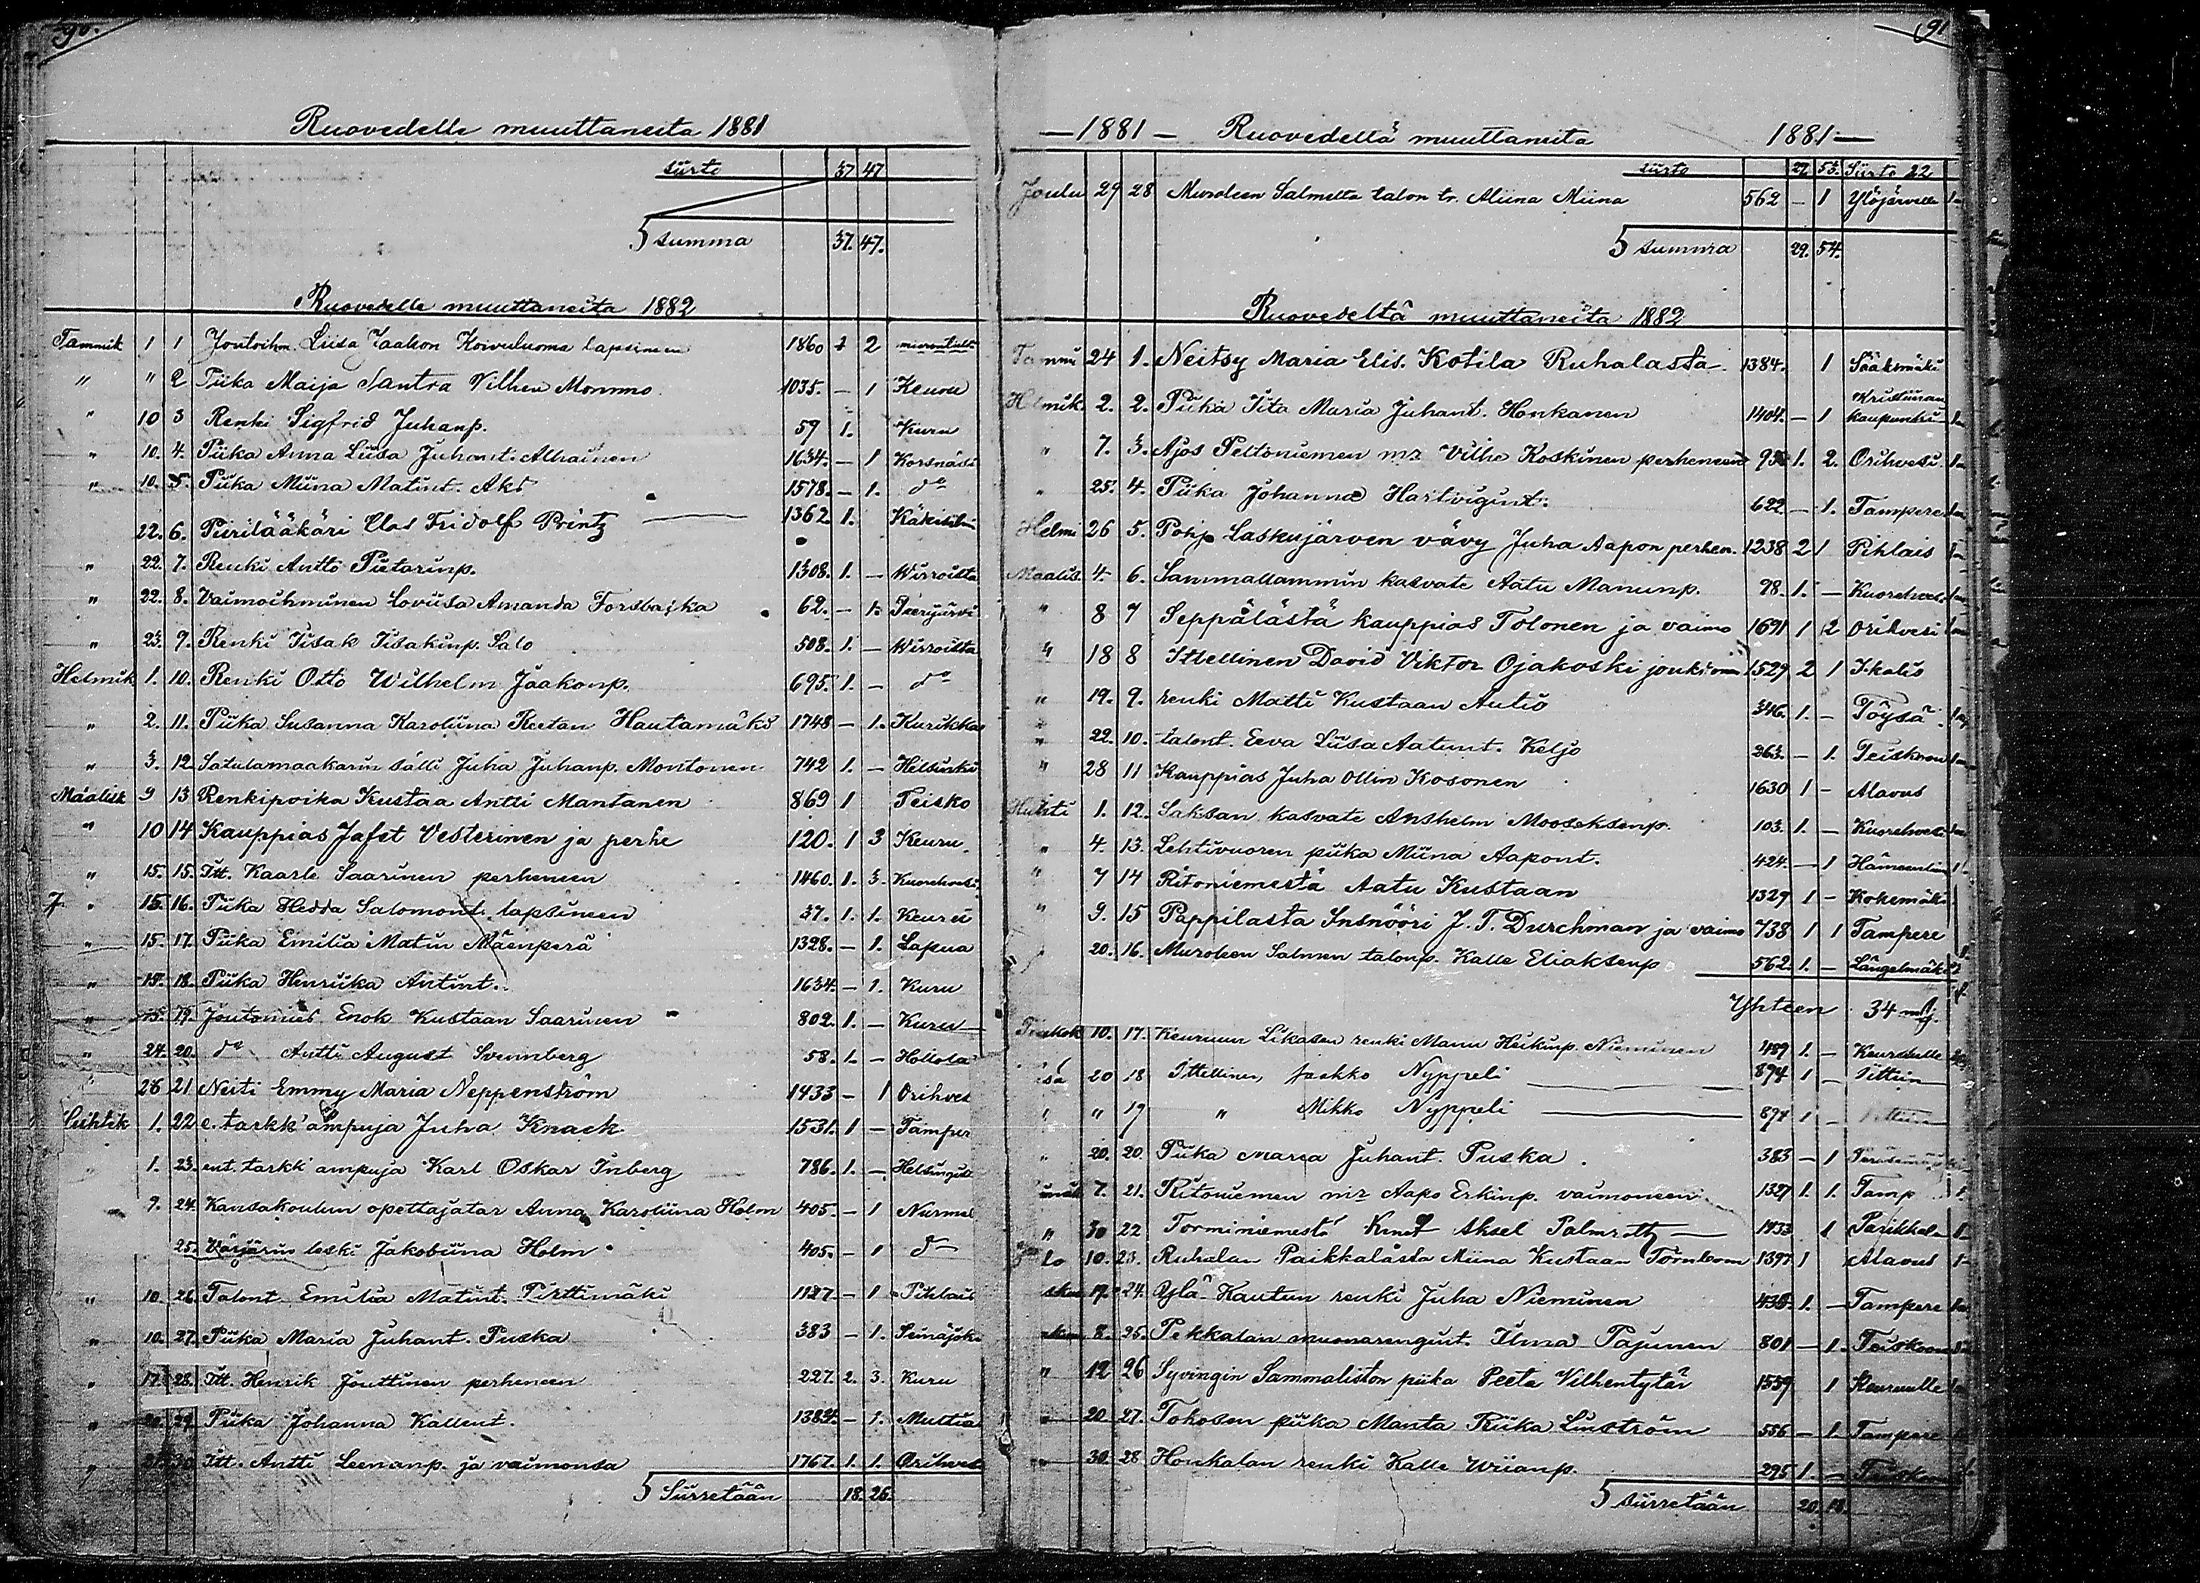 90.
Ruovedelle muuttaneita 1881
siirto 37 47
Summa 37. 47.
Ruovedelle muuttaneita 1882
Tammik 1 1 Joutoihm. Liisa Jaakon Koivuluoma lapsineen 1860 1 2
" " 2 Piika Maija Santra Vilhen Mommo 1035. — 1 Keuru
" 10 3 Renki Sigfrid Juhanp. 59 1. Kuru
" 10. 4. Piika Anna Liisa Juhant. Alhainen 1634. — 1 Korsnäsi
" 10. 5. Piika Miina Matint. Aks 1578. — 1. do
22. 6. Piirilääkäri Clas Fridolf Printz 1362. 1. Käkisalmi
" 22. 7. Renki Antto Pietarinp. 1308. 1. — Wirroilta
" 22. 8. Vaimoihminen Loviisa Amanda Forsbacka 62. — 1.
" 23. 9. Renki Iisak Iisakinp. Salo 508. 1. — Wirroilta
Helmik 1. 10. Renki Otto Wilhelm Jaakonp. 695. 1. — do
" 2. 11. Piika Susanna Karoliina Keetan Hautamäki 1748 — 1. Kurikka
" 3. 12. Satulamaakarin sälli Juha Juhanp. Montonen 742 1. — Helsinki
Maalisk 9 13 Renkipoika Kustaa Antti Mantanen 869 1 Teisko
" 10 14 Kauppias Jafet Vesterinen ja perhe 120. 1 3 Keuru.
" 15. 15. Itt. Kaarle Saarinen perheneen 1460. 1. 3. Kuorehvesi
" 15. 16. Piika Hedda Salomont. lapsineen 37. 1. 1. Keuru
" 15. 17. Piika Emilia Matin Mäenperä 1328. — 1. Lapua
" 15. 18. Piika Henriika Antint. 1634. — 1. Kuru
" 15. 19. Joutomies Enok Kustaan Saarinen 802. 1. — Kuru
" 24. 20. do Antti August Svennberg 58. 1. — Hollola
28 21 Neiti Emmy Maria Neppenström 1433 — 1 Orihves
Huhtik 1. 22 e. tarkk'ampuja Juha Knack 1531. 1 — Tamper
1. 23. ent. tarkk'ampuja Karl Oskar Inberg 786. 1. — Helsingist
9. 24. Kansakoulun opettajatar Anna Karoliina Holm 405. — 1 Nurmes
25. Värjärin leski Jakobiina Holm 405. — 1 do
" 10. 26. Talont. Emilia Matint. Pirttimäki 1127 — 1 Pihlais
" 10. 27. Piika Maria Juhant. Puska 383 — 1. Seinäjoki
" 17. 28. Itt. Henrik Jouttinen perheneen 227. 2. 3. Kuru
" 29. Piika Johanna Kallent. 1384. — 1. Multia
" 30 Itt. Antti Leenanp. ja vaimonsa 1767. 1. 1. Orihves
Siirretään 18. 26.
91
— 1881 — Ruovedeltä muuttaneita 1881 —
siirto 29. 53. Siirto 22
Joulu 29 28 Muroleen Salmelta talon tr. Aliina Miina 562 — 1 Ylöjärvelle
Summa 29. 54.
Ruovedeltä muuttaneita 1882
Tammi 24 1. Neitsy Maria Elis. Kotila Ruhalasta 1384. 1 Sääksmäki
Helmik. 2. 2. Piika Iita Maria Juhant. Honkanen 1404. — 1 Kristiinan kaupunkiin
" 7. 3. Ajos Peltoniemen mr Vilhe Koskinen perheneen 1. 2. Orihvesi
" 25. 4. Piika Johanna Hartvigint. 622. — 1. Tampere
Helmi 26 5. Pohj Laskujärven vävy Juha Aapon perhen. 1238 2 1 Pihlais
Maalis. 4. 6. Sammallammin kasvate Aatu Manunp. 98. 1. — Kuorehves.
" 8 7 Seppälästä kauppias Tolonen ja vaimo 1691 1 2 Orihvesi
" 18 8 Ittellinen David Viktor Ojakoski joukkonn 1529 2 1 Ikalis
" 19. 9. renki Matti Kustaan Autio 346. 1. — Töysä
" 22. 10. talont. Eeva Liisa Aatunt. Keljo 263. — 1. Teiskoon
" 28 11 Kauppias Juha Ollin Kosonen 1630 1 — Alavus
Huhti 1. 12. Saksan kasvate Anshelm Mooseksenp. 103. 1. — Kuorehves
" 4. 13. Lehtivuoren piika Miina Aapont. 424. — 1 Hämeenlin
" 7 14 Ritoniemestä Aatu Kustaan 1329 1 — Kokemäki
" 9. 15 Pappilasta Insnööri J. T. Durchman ja vaimo 738 1 1 Tampere
20. 16. Muroleen Salmen talonp. Kalle Eliaksenp 562. 1. — Längelmäk
Yhteen 34
Toukok 10. 17. Keuruun Likasen renki Manu Heikinp. Nieminen 489 1. — Keuruulle
20 18 Ittellinen Jaakko Nyppeli 874 1 — Vittiin
" " 19 " Mikko Nyppeli 874 1 — Vittiin
" 20. 20. Piika Maria Juhant. Puska. 383 — 1
7. 21. Ritoniemen mr Aapo Erkinp. vaimoneen 1327 1. 1. Tamp
" 30 22 Torminiemestä Knut Aksel Palmroth 1433 1 Parikkala
10. 23. Ruhalan Paikkalasta Miina Kustaan Törnbom 1397 1 Alavus
17. 24. Ylä-Kautun renki Juha Nieminen 438. 1. — Tampere
8. 25. Pekkalan muonarengint. Ilma Pajunen 801 — 1. Teiskoon
" 12 26 Syvingin Sammaliston piika Peeta Vilhentytär 1559 1 Keuruulle
" 20 27. Tohosen piika Manta Riika Linström 556 — 1. Tampere
" 30. 28 Honkalan renki Kalle Wiianp. 295 1. — Teiskoon
Siirretään 20. 18.